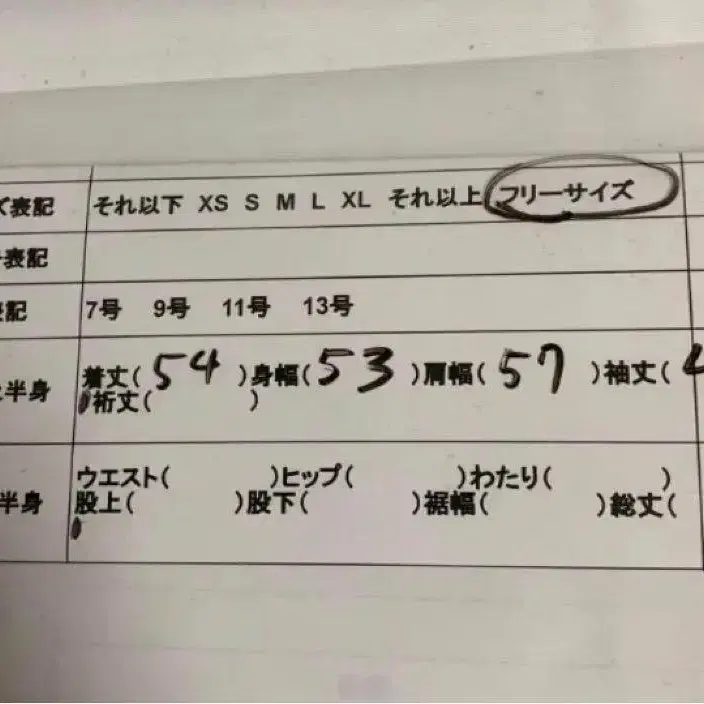 ズ表記 それ以下 XS S M L XL それ以上 フリーサイズ
表記
表記 7号 9号 11号 13号
半身 着丈( 54 )身幅( 53 )肩幅( 57 )袖丈(
裄丈( )
半身 ウエスト( )ヒップ( )わたり( )
股上( )股下( )裾幅( )総丈(